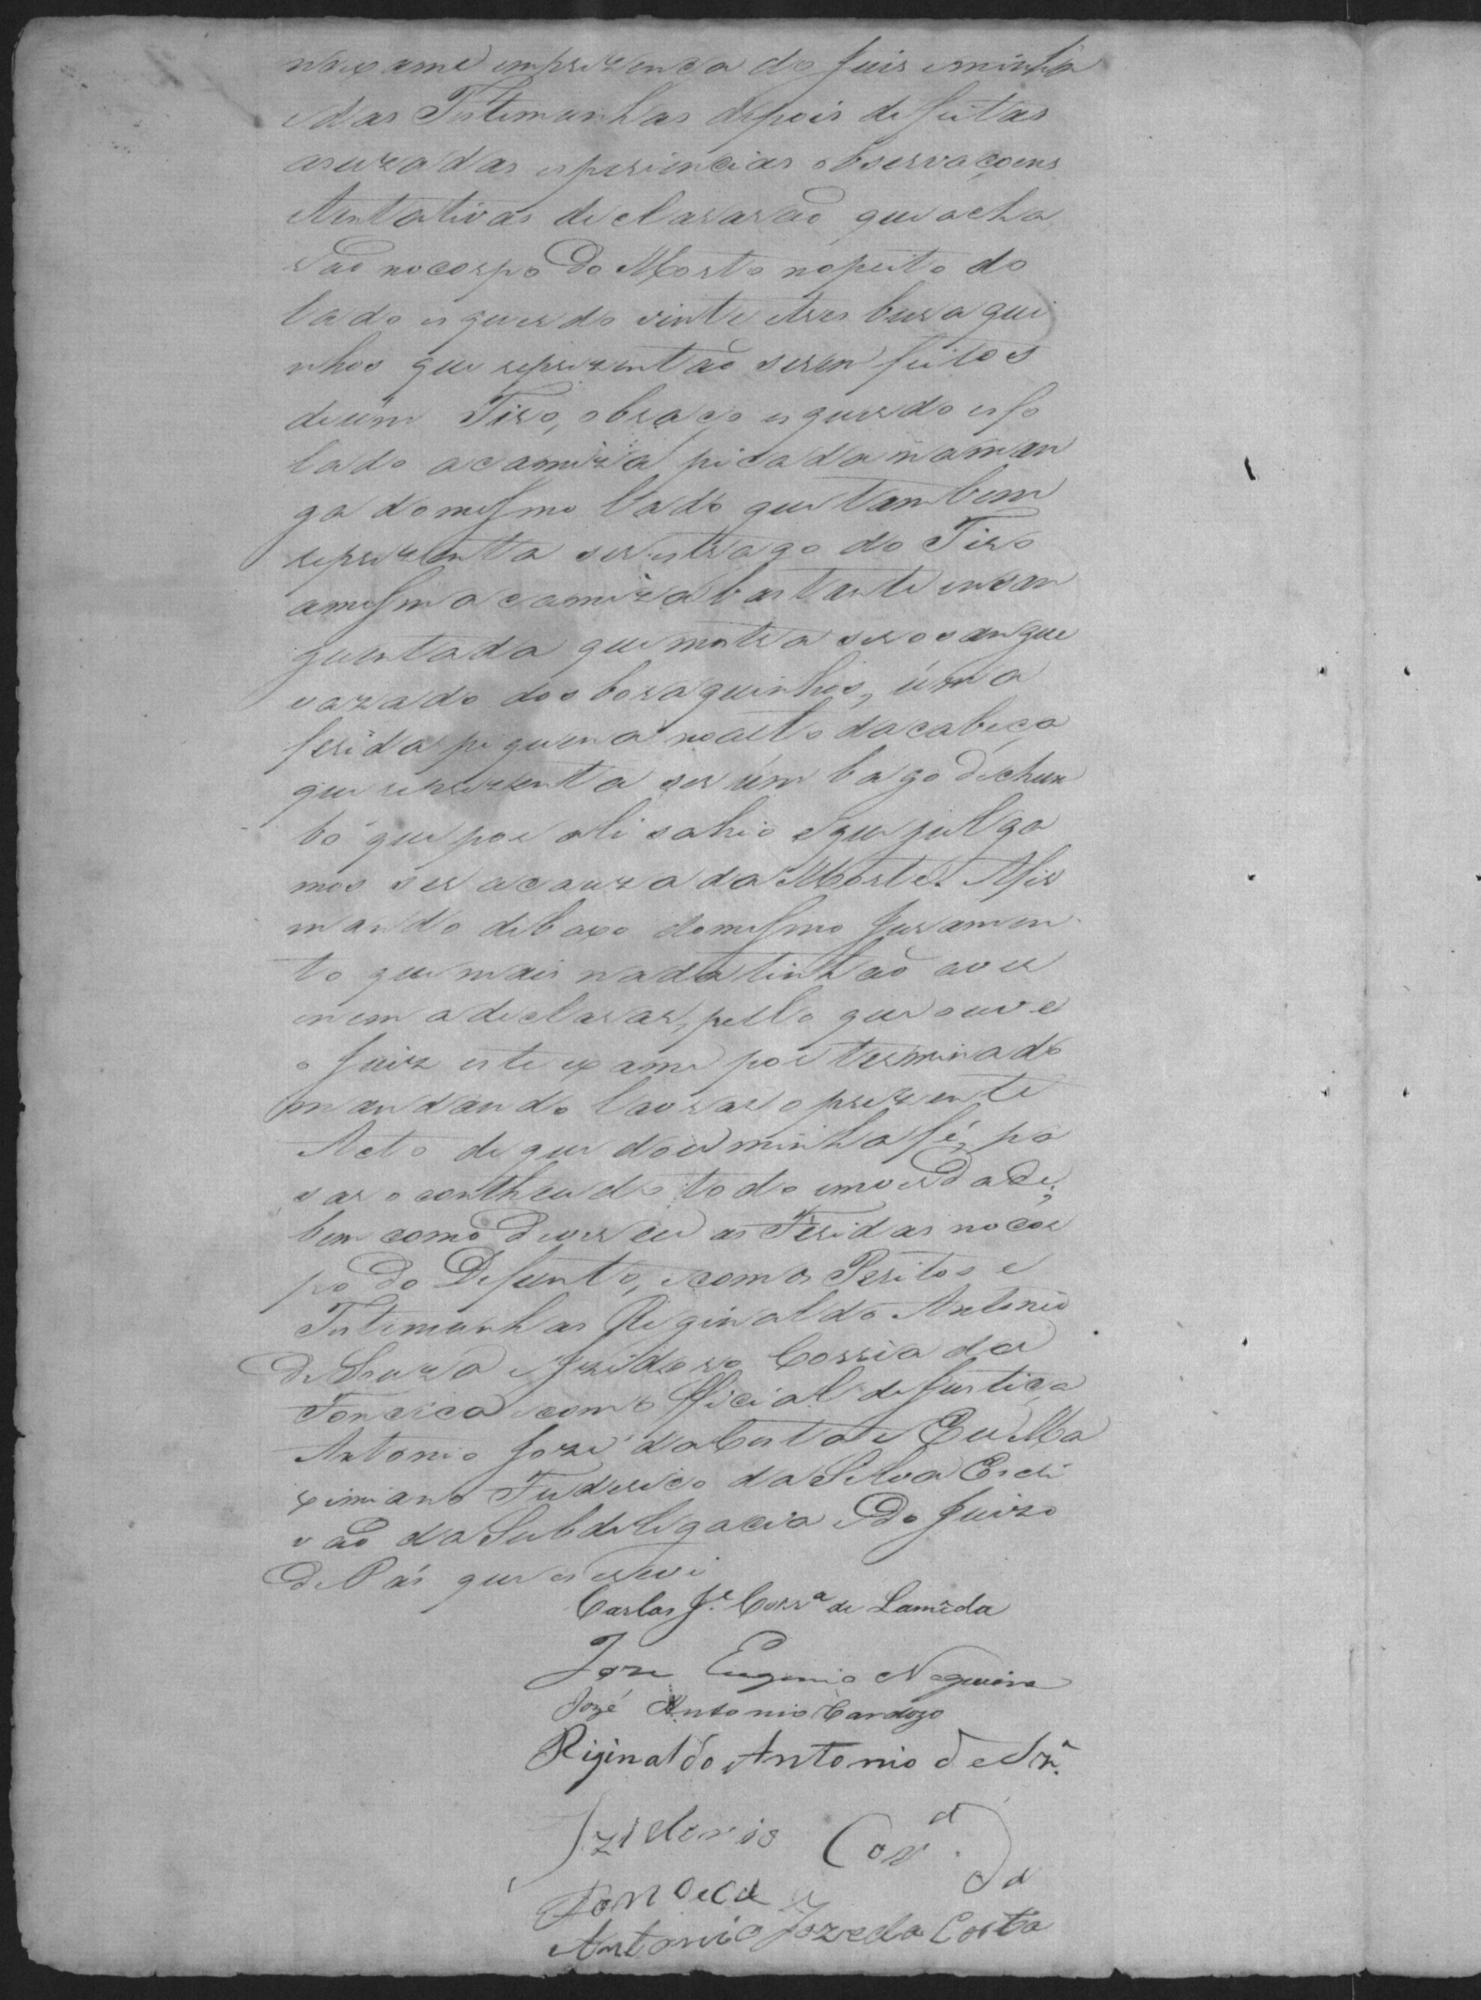 no exame emprezenca do Juis eminha
edas Testemunhas depois defeitas
asuzadas esperiencias observaçoens
etentativas declararaõ que acha
raõ nocorpo do Morto nopeito do
lado esquerdo vinte etres buraqui
nhos que reprezentaõ seren feitos
deúm Tiro, obraço esquerdo esfo
lado acamiza picada naman
ga domesmo lado que tambem
reprezenta ser estrago do Tiro
amesma camiza bastante ensan
guentada que mostra ser osangue
vazado dos boraquinhos, úma
ferida piquena noalto dacabeça
que reprezenta ser úm bago dechun
bo que por ali sahio eque julga
mos ser acauza da Morte. Afir
mando debaxo domesmo Juramen
to que mais nada tinhaõ aver
enem adeclarar, pello que ouve
o Juiz este exame por terminado
mandando lavrar o prezente
Acto de que dou minha fé, pa
sar ocontheudo todo emverdade;
bem como as Feridas nocor
po do Defunto, ecomos Peritos e
Testemunhas Reginaldo Antonio
de Souza e Izidoro Correia da
Fonceca ecom o Oficial de Justica
Antonio Jozé da Costa e Eu Ma
ximiano Federico da Silva Escri
vaõ da Subdelegacia edo Juizo
de Pás que escrevi
Carlos Je. Corra de Lameda
Joze Eugenio Nogueira
Jozé Antonio Cardozo
Riginaldo Antonio de Sza.
Izidorio Cora. da
Fonceca
Antonio Joze da Costa